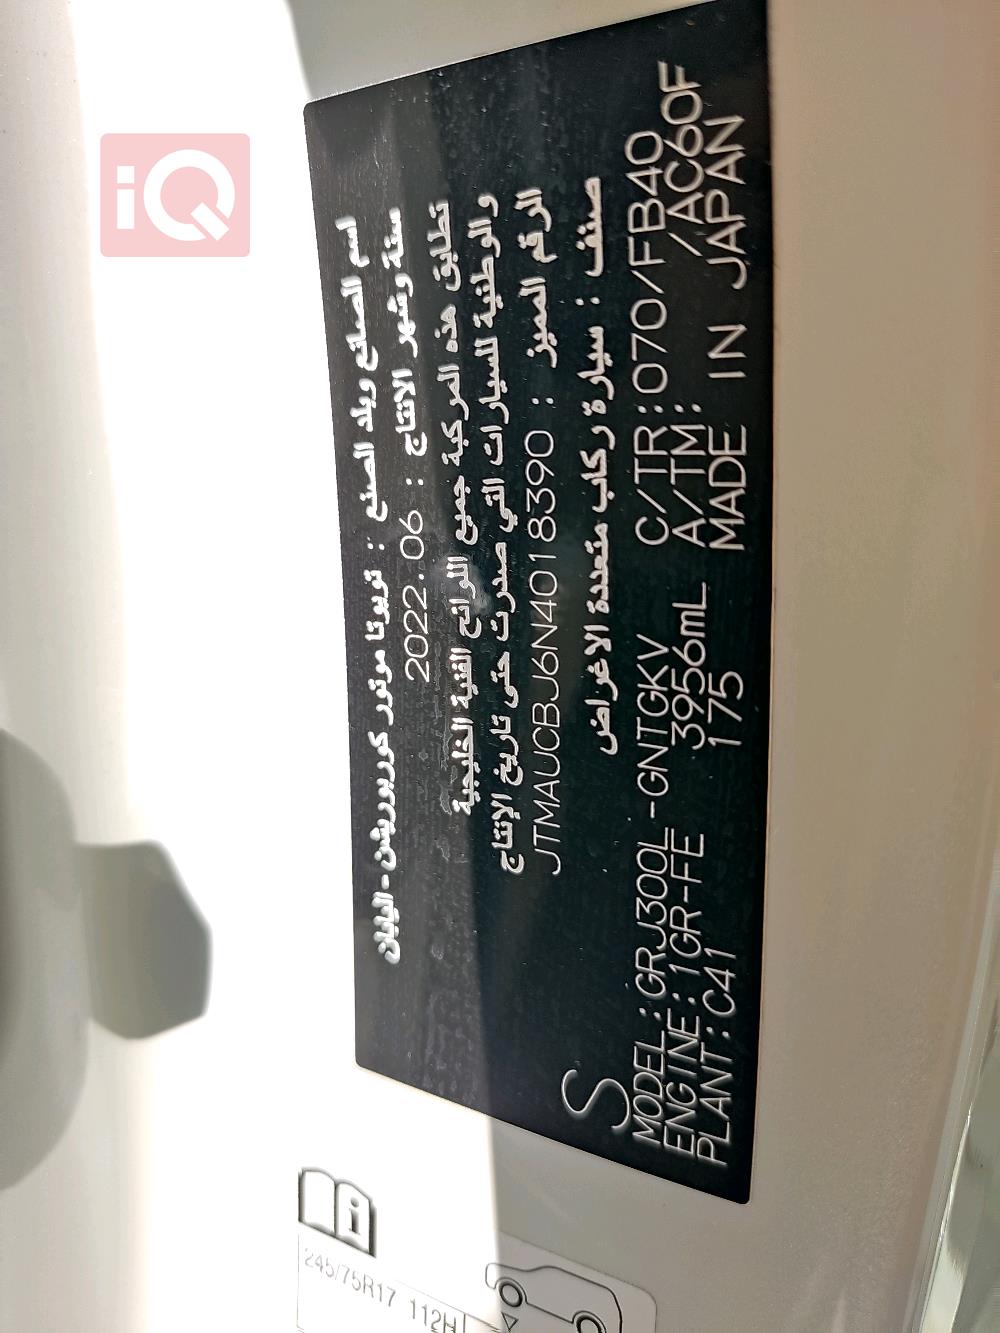 iQ
اسم الصانع وبلد الصنع : تويوتا موتور كوربوريشن-اليابان
سنة وشهر الانتاج : 2022.06
تطابق هذه المركبة جميع اللوائح الفنية الخليجية
والوطنية للسيارات التي صدرت حتى تاريخ الإنتاج
الرقم المميز : JTMAUCBJ6N4018390
صنف : سيارة ركاب متعددة الاغراض
S
MODEL:GRJ300L-GNTGKV C/TR:070/FB40
ENGINE:1GR-FE 3956mL A/TM: /AC60F
PLANT:C41 175 MADE IN JAPAN
i
245/75R17 112H